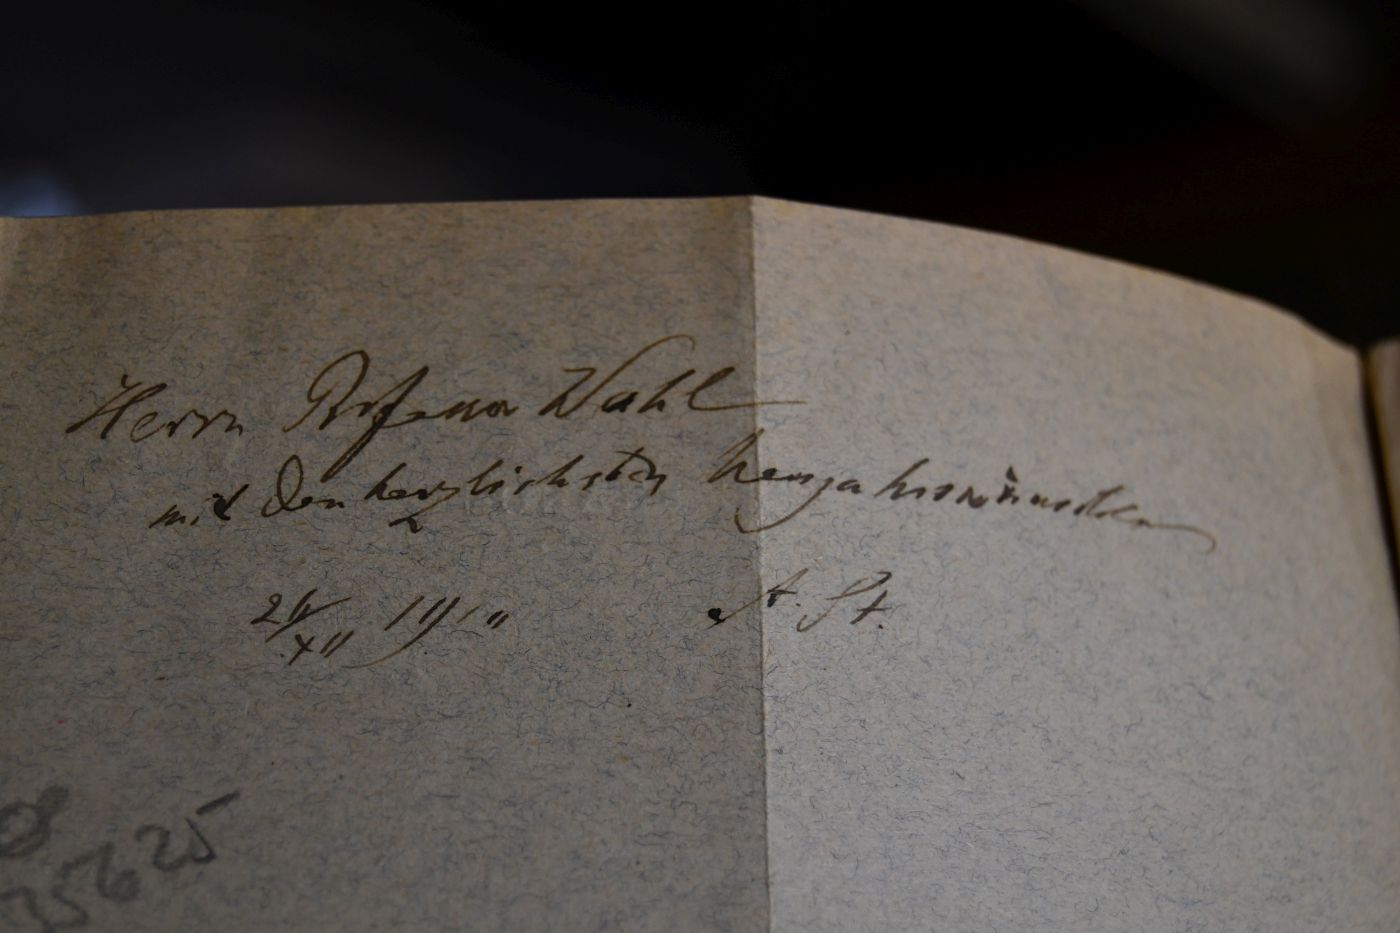 Herrn Professor Wahl
mit den herzlichsten Neujahrswünschen
A. St.
25625